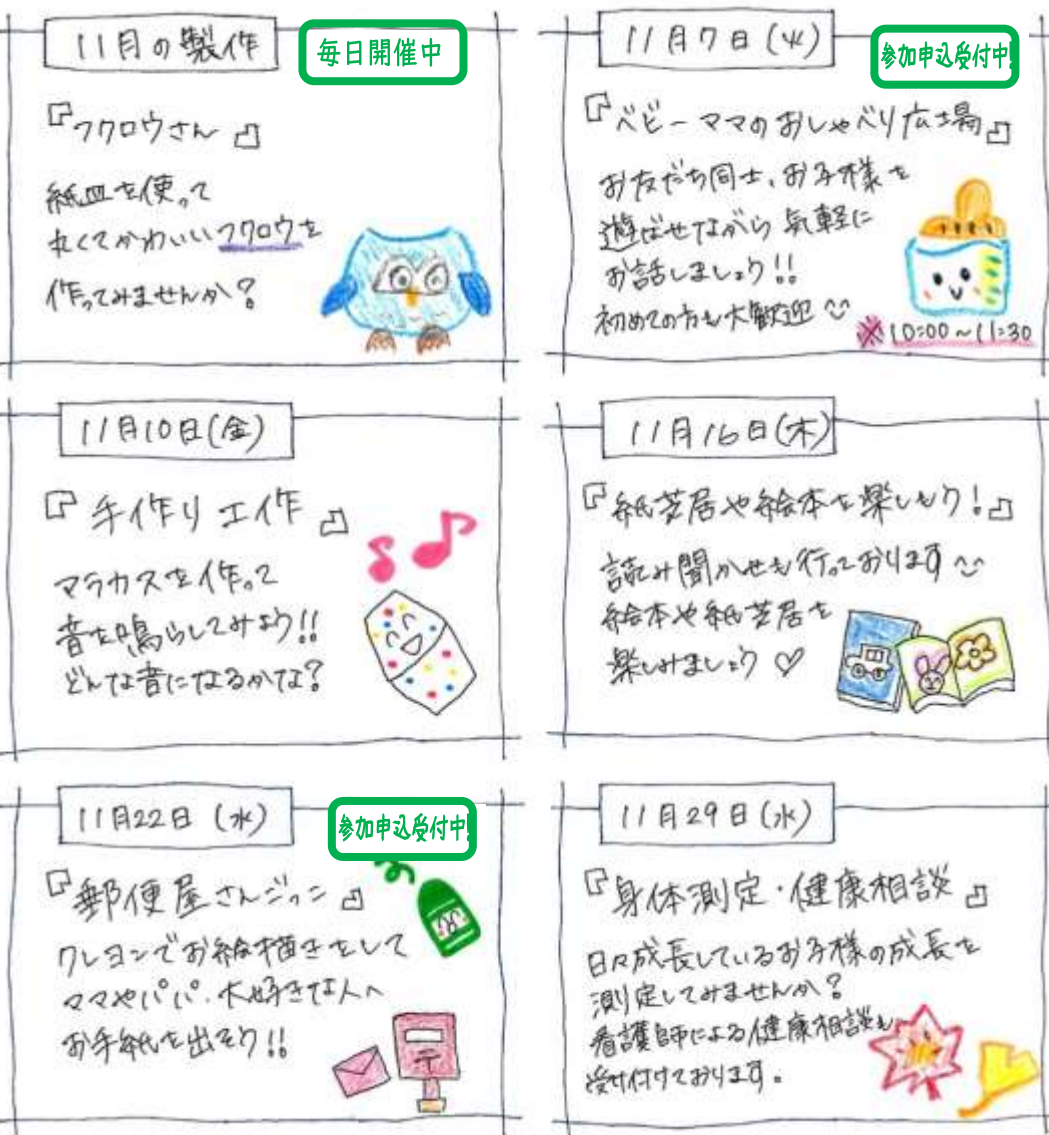 11月の製作
毎日開催中
『フクロウさん』
紙皿を使って
丸くてかわいいフクロウを
作ってみませんか?
11月7日(火)
参加申込受付中!
『ベビーママのおしゃべり広場』
お友だち同士、お子様を
遊ばせながら気軽に
お話しましょう!!
初めての方も大歓迎
※10:00~11:30
11月10日(金)
『手作り工作』
マラカスを作って
音を鳴らしてみよう!!
どんな音になるかな?
11月16日(木)
『紙芝居や絵本を楽しもう!』
読み聞かせも行っております
絵本や紙芝居を
楽しみましょう♡
11月22日(水)
参加申込受付中!
『郵便屋さんごっこ』
クレヨンでお絵描きをして
ママやパパ、大好きな人へ
お手紙を出そう!!
〒
11月29日(水)
『身体測定・健康相談』
日々成長しているお子様の成長を
測定してみませんか?
看護師による健康相談も
受け付けております。